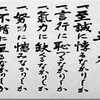 一至誠に悖るなかりしか
一言行に恥づるなかりしか
一氣力に缺くるなかりしか
一努力に憾みなかりしか
一不精に亘るなかりしか